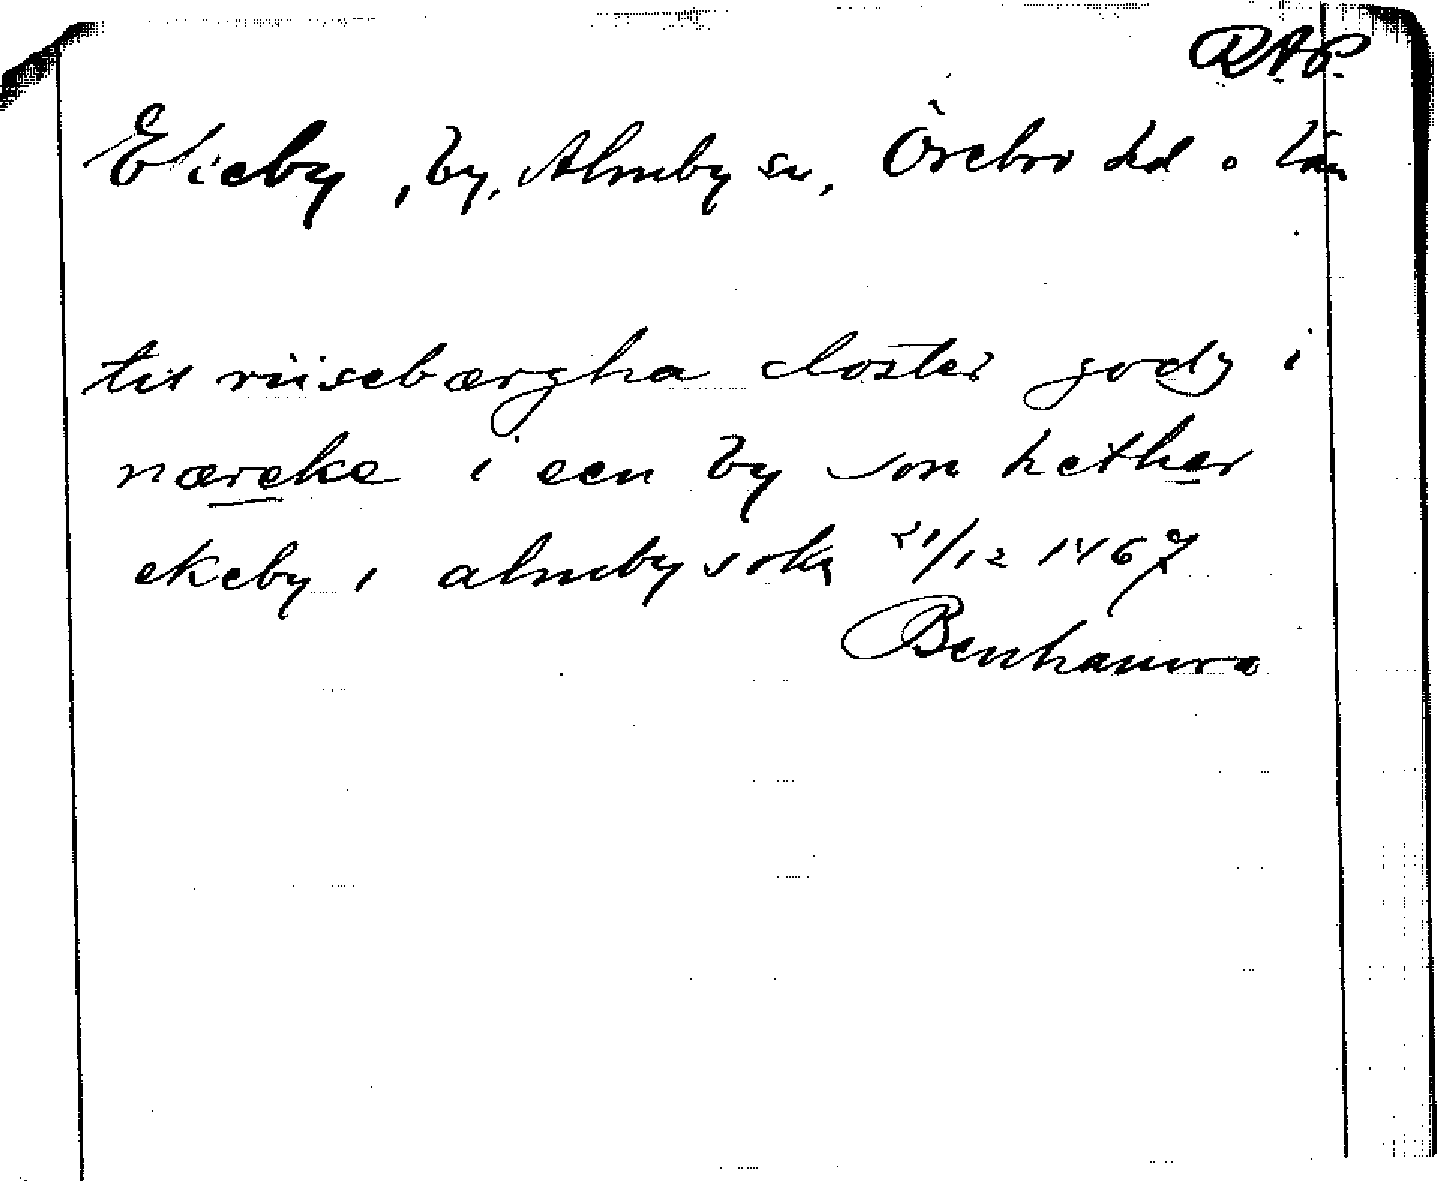 RAP.
Ekeby, by, Almby sn, Örebro hd o län
til riisebærgha closter godz i
næreke i een by som hether
ekeby i almby sokn 21/12 1467
Benhamra